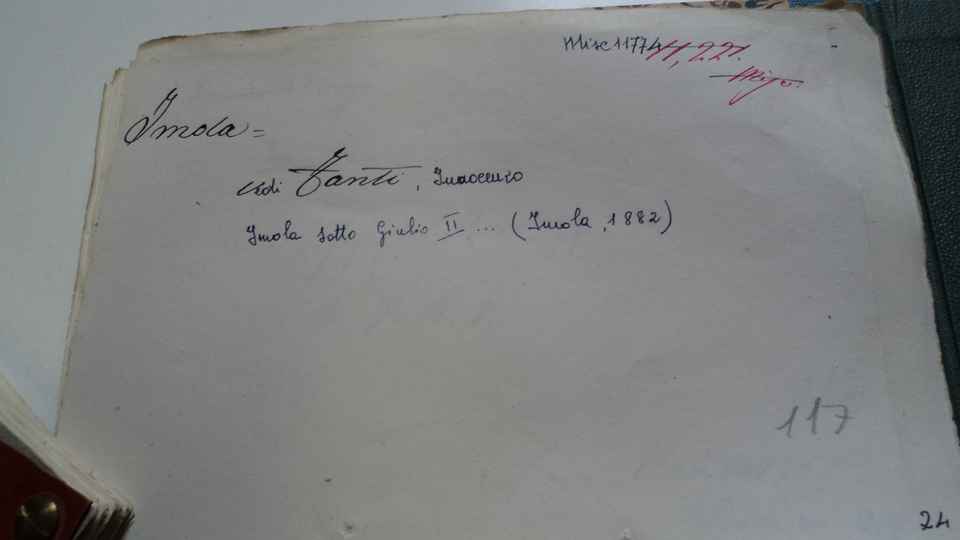 Misc 11774
Imola =
vedi Tanti, Innocenzo
Imola sotto Giulio II ... (Imola, 1882)
117
24